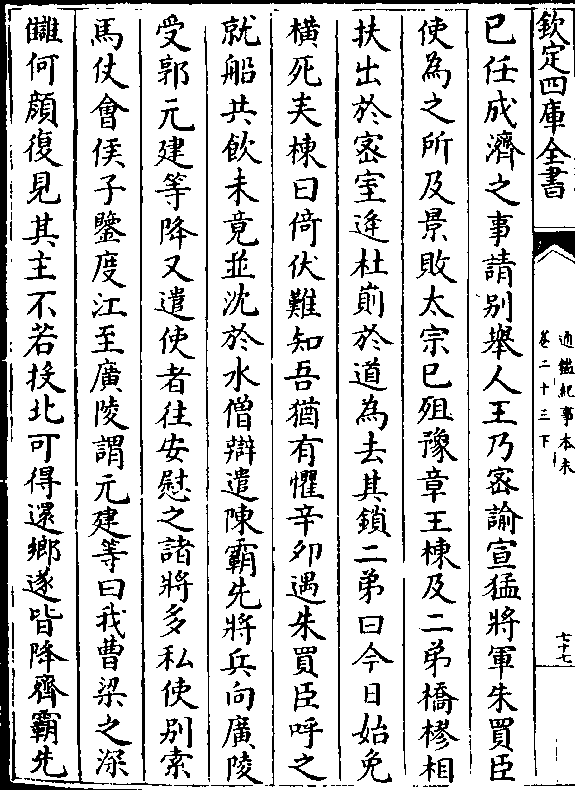 欽定四庫全書
通鑑紀事本末
卷二十三下
七十七
已任成濟之事請别舉人王乃宻諭宣猛將軍朱買臣
使為之所及景敗太宗已殂豫章王棟及二弟橋樛相
扶出於宻室逢杜崱於道為去其鎖二弟曰今日始免
横死矣棟曰倚伏難知吾猶有懼辛夘遇朱買臣呼之
就船共飲未竟並沈於水僧辯遣陳霸先將兵向廣陵
受郭元建等降又遣使者往安慰之諸將多私使别索
馬仗會侯子鑒度江至廣陵謂元建等曰我曹梁之深
讎何顔復見其主不若投北可得還鄉遂皆降齊霸先